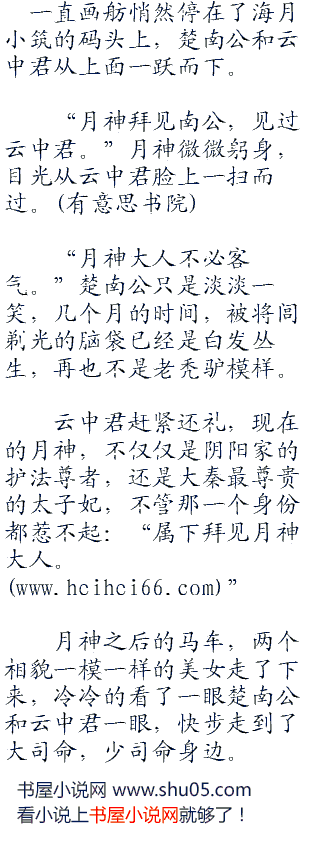 一直画舫悄然停在了海月
小筑的码头上，楚南公和云
中君从上面一跃而下。
“月神拜见南公，见过
云中君。”月神微微躬身，
目光从云中君脸上一扫而
过。(有意思书院)
“月神大人不必客
气。”楚南公只是淡淡一
笑，几个月的时间，被将闾
剃光的脑袋已经是白发丛
生，再也不是老秃驴模样。
云中君赶紧还礼，现在
的月神，不仅仅是阴阳家的
护法尊者，还是大秦最尊贵
的太子妃，不管那一个身份
都惹不起：“属下拜见月神
大人。
(www.hcihci66.com)”
月神之后的马车，两个
相貌一模一样的美女走了下
来，冷冷的看了一眼楚南公
和云中君一眼，快步走到了
大司命，少司命身边。
书屋小说网 www.shu05.com
看小说上书屋小说网就够了！